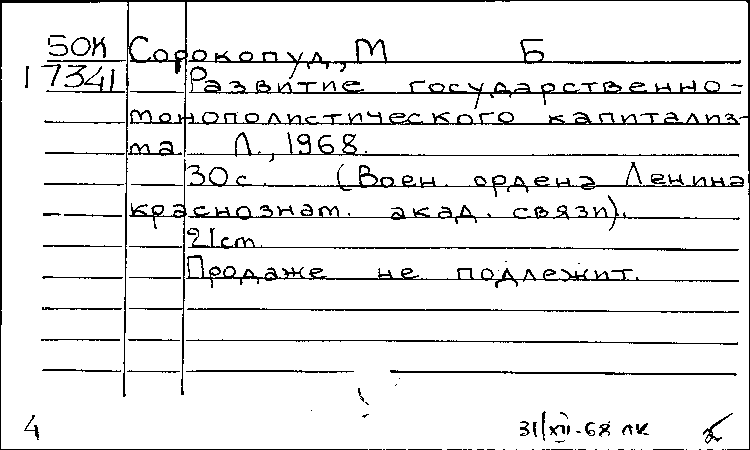 50К Сорокопуд, М Б
17341 Развитие государственно-
монополистического капитализ-
ма Л., 1968.
30с. (Воен. ордена Ленина
краснознам. акад. связи).
21cm.
Продаже не подлежит.
4 31/XII-68 ЛК